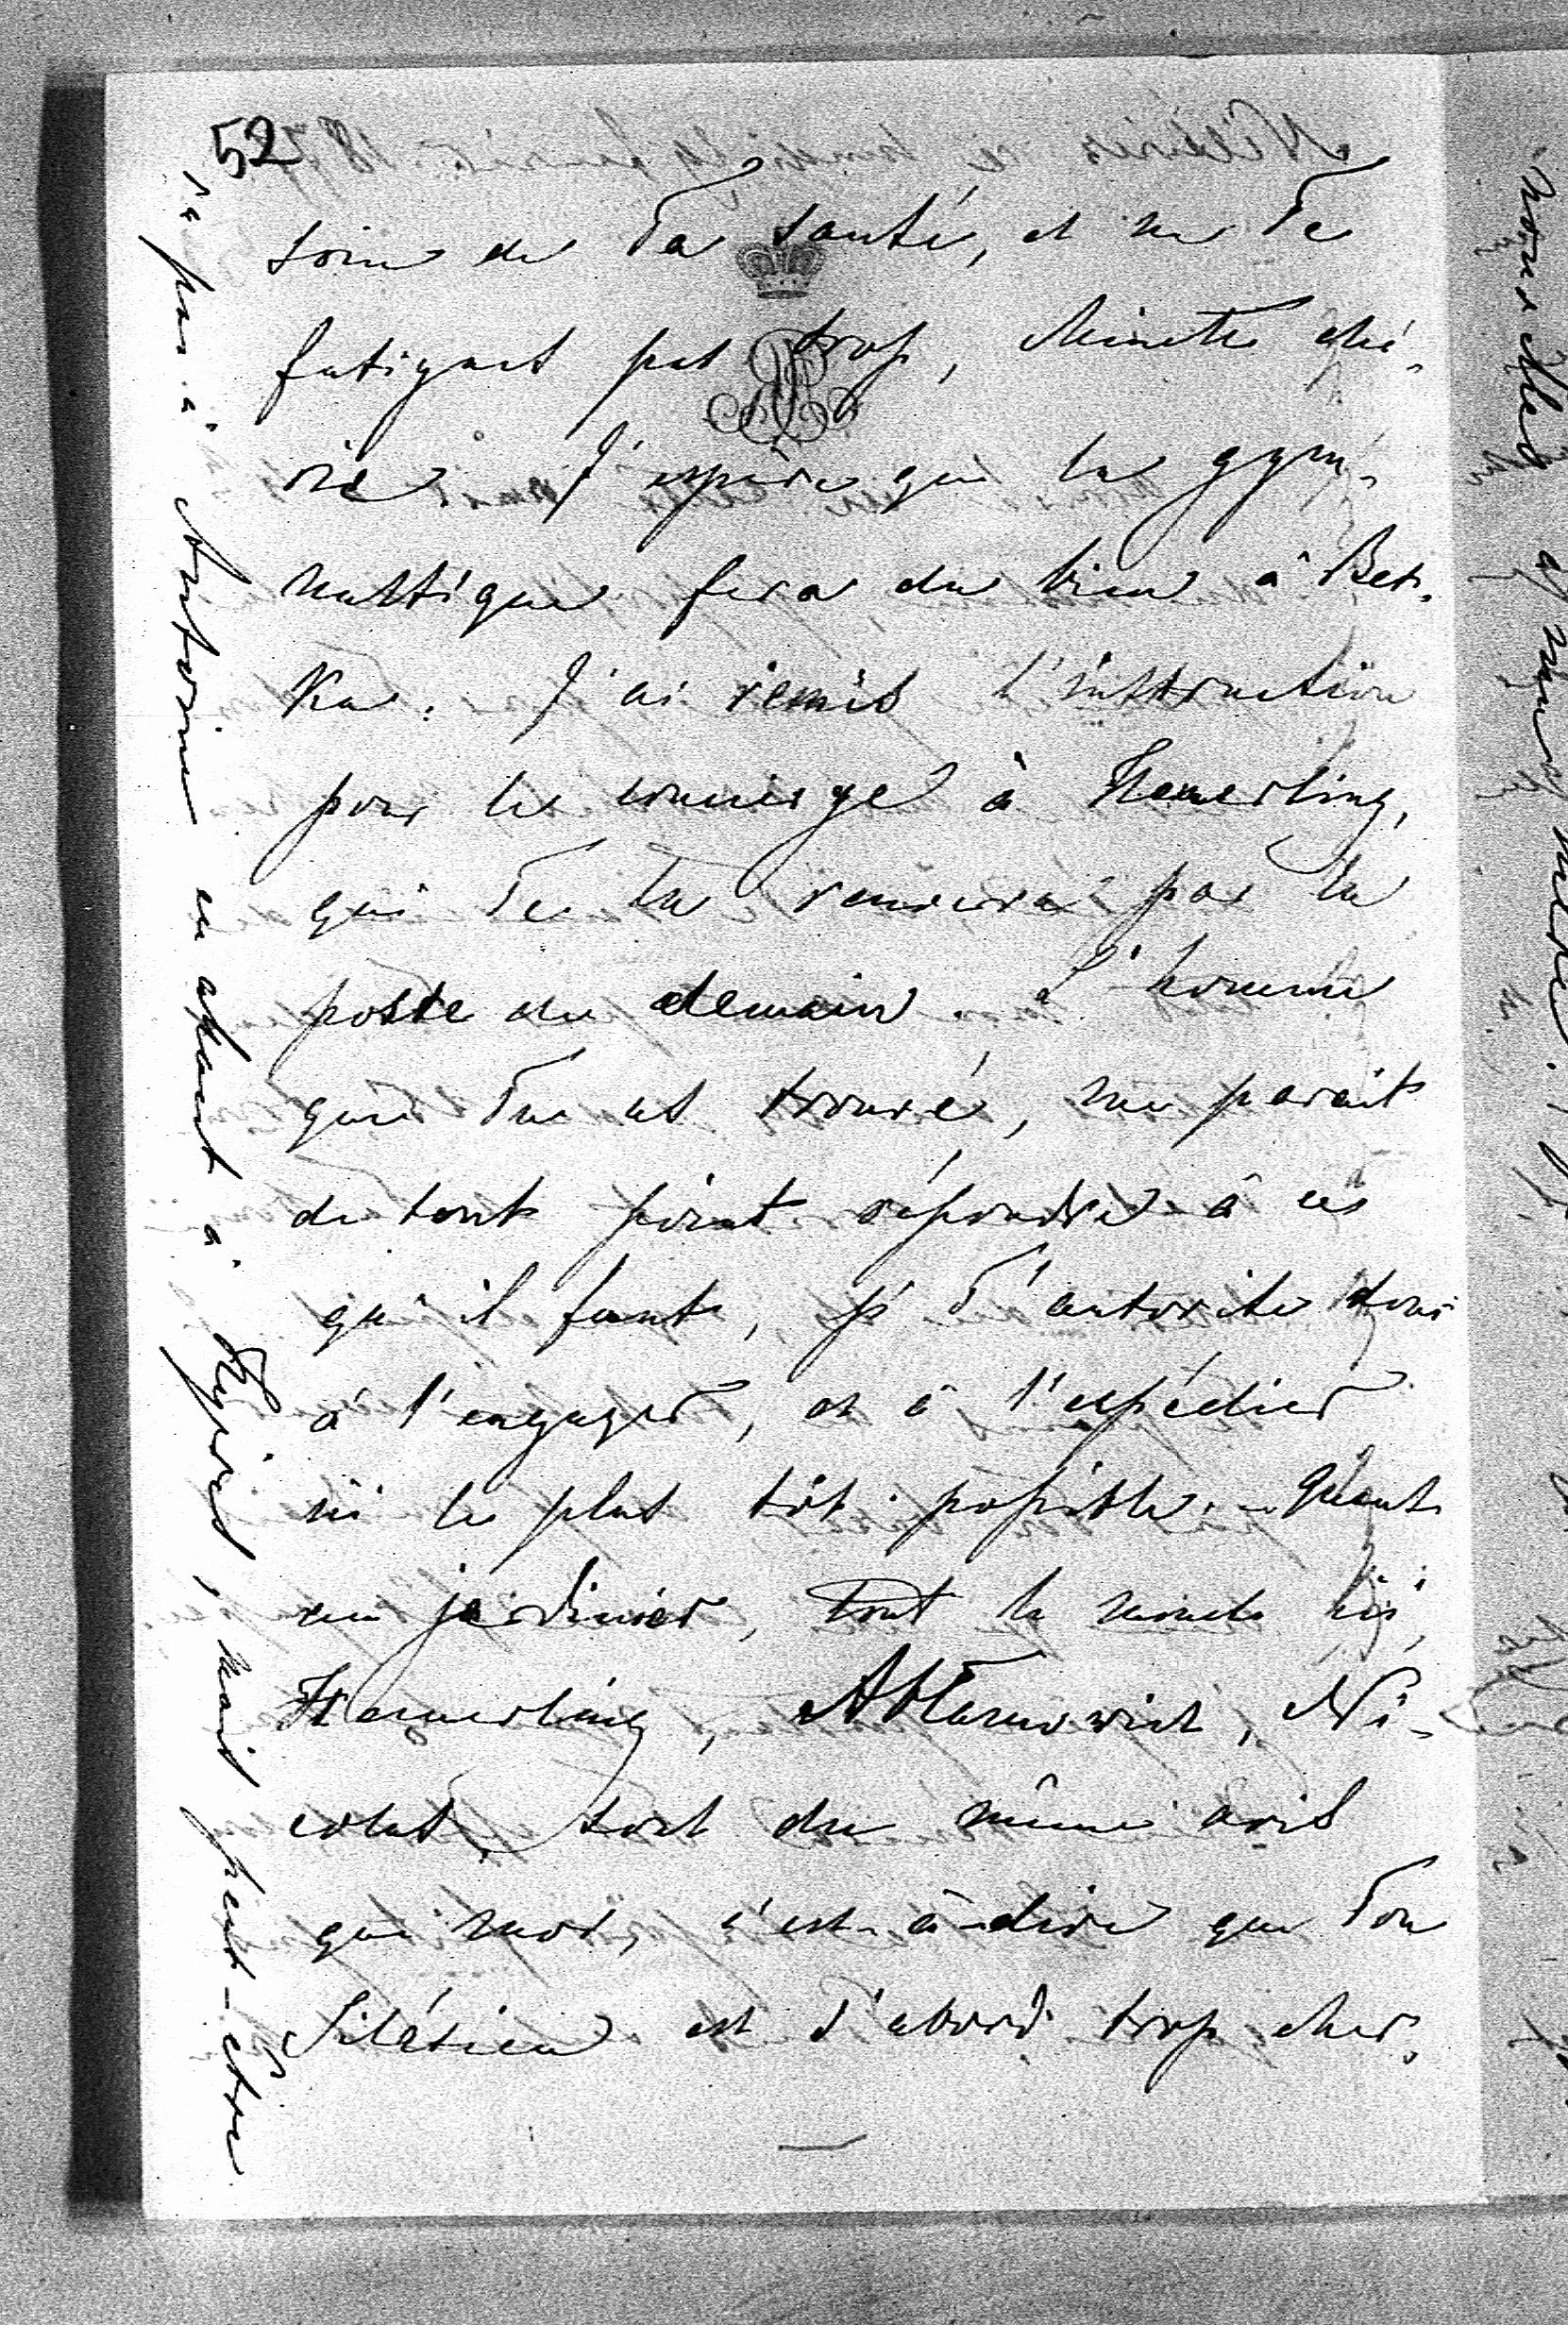 52
soin de Ta santé, et ne Te
fatigues pas trop, Minette ché-
rie. J'espère que la gym-
nastique fera du bien à Bet-
ka. J'ai remis l'instruction
pour le concierge à Hemerling,
qui Te la renverra par la
poste de demain. L'homme
que Tu as trouvé, me parait
de tout point répondre à ce
qu'il faut, je T'autorise donc
à l'engager, et à l'expédier
ici le plus tôt possible. Quant
au jardinier, tout le monde ici,
Hemerling, Ablamowicz, Ni-
colas, sont du même avis
que moi, c'est-à-dire que Ton
Silésien est d'abord trop cher,
pas à Antonin en allant à Kypied, mais peut-être